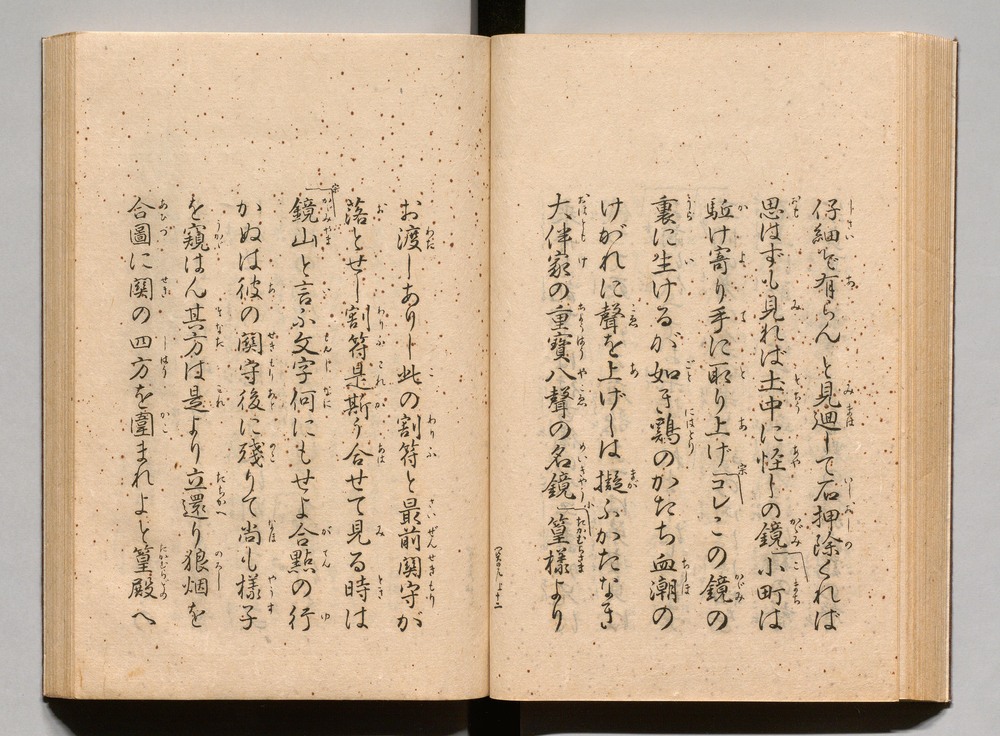 仔細で有らんと見廻して石押除くれば
思はずも見れば土中に怪しの鏡小町は
駈け寄り手に取り上げ宗コレこの鏡の
裏に生けるが如き鶏のかたち血潮の
けがれに聲を上げしは擬ふかたなき
大伴家の重寳八聲の名鏡小篁様より
お渡しありし此の割符と最前関守が
落とせし割符是斯う合せて見る時は
宗鏡山と言ふ文字何にもせよ合點の行
かぬは彼の関守後に殘りて尚も樣子
を窺はん其方は是より立還り狼烟を
合圖に関の四方を圍まれよと篁殿へ